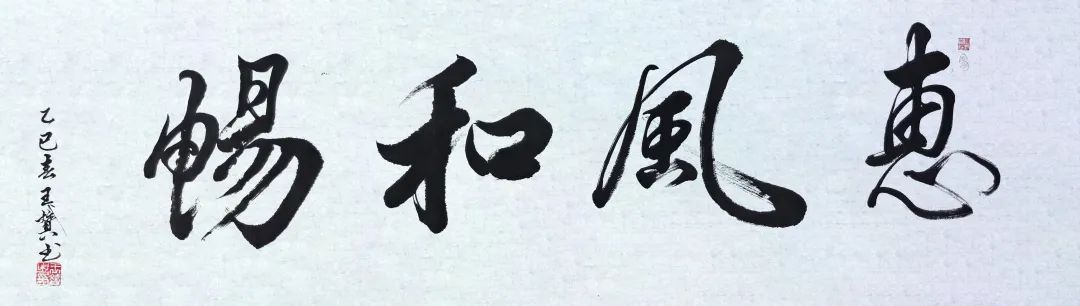 惠風和暢
乙巳春王贊书